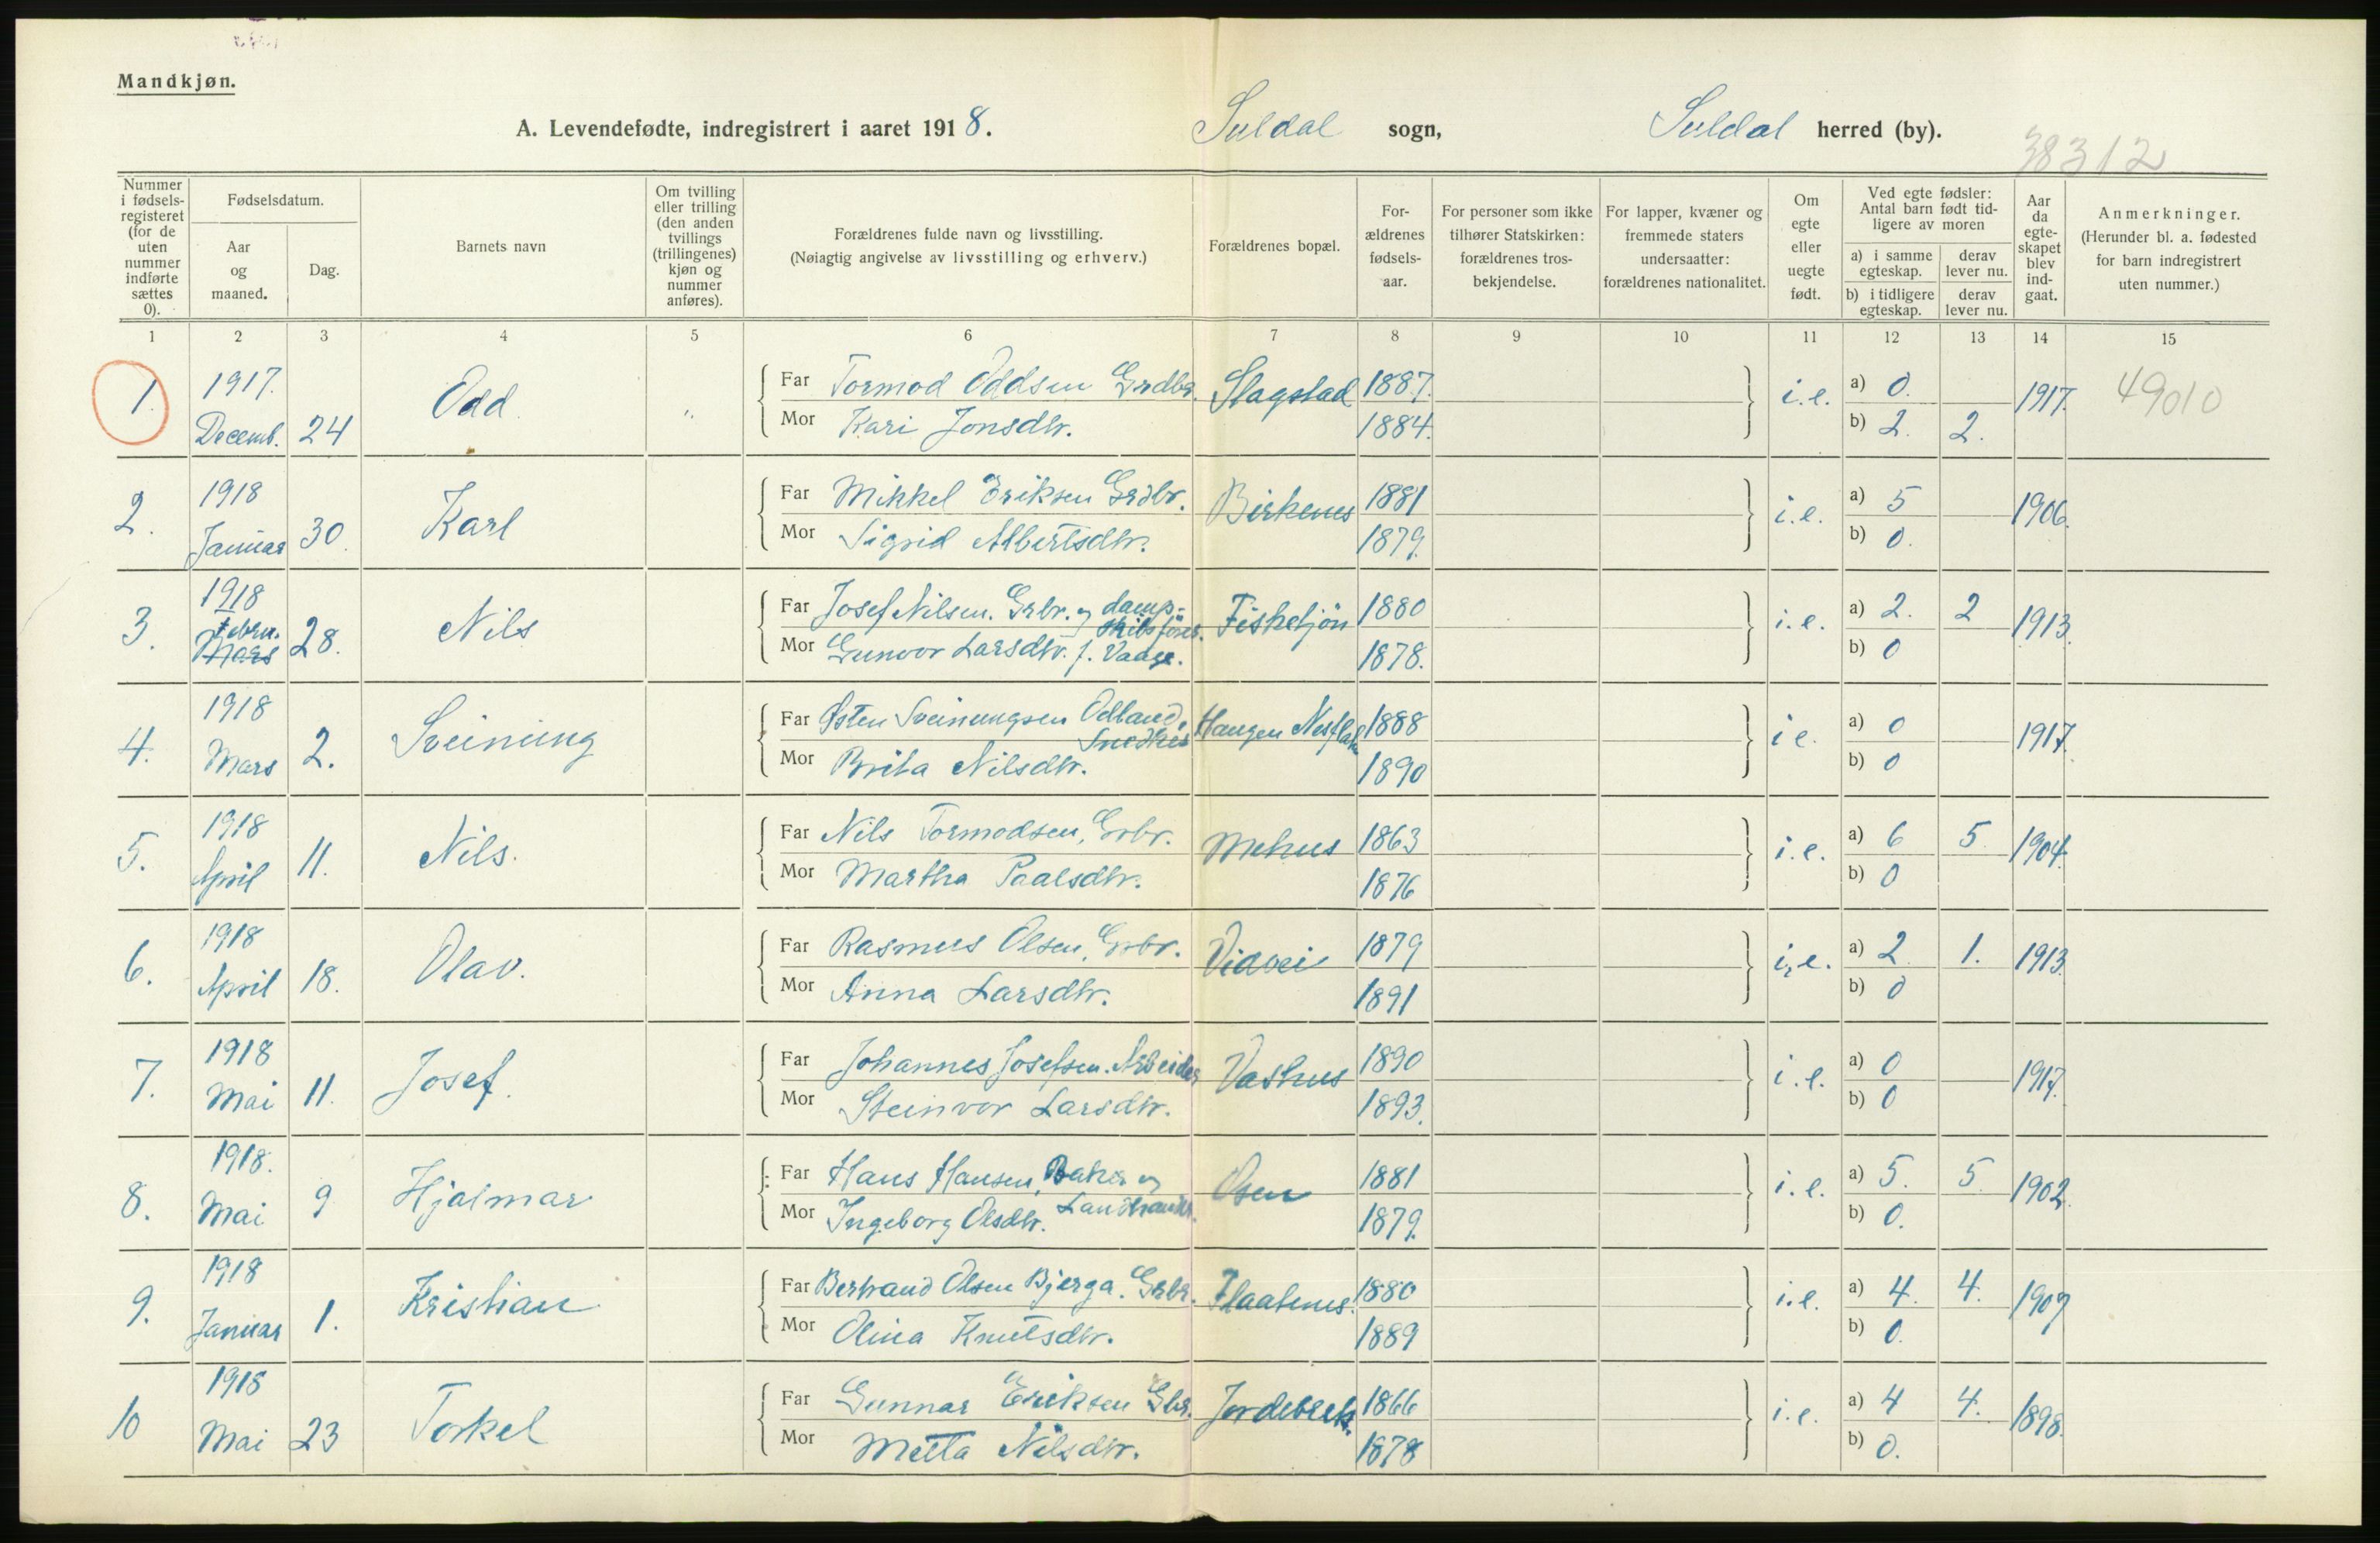 Mandkjøn.
A. Levendefødte, indregistrert i aaret 1918. Suldal sogn, Suldal herred (by).
38312
Nummer i fødsels-registeret (for de uten nummer indførte sættes 0).
Fødselsdatum.
Aar og maaned.
Dag.
Barnets navn
Om tvilling eller trilling (den anden tvillings (trillingenes) kjøn og nummer anføres).
Forældrenes fulde navn og livsstilling.
(Nøiagtig angivelse av livsstilling og erhverv.)
Forældrenes bopæl.
For-ældrenes fødsels-aar.
For personer som ikke tilhører Statskirken: forældrenes tros-bekjendelse.
For lapper, kvæner og fremmede staters undersaatter: forældrenes nationalitet.
Om egte eller uegte født.
Ved egte fødsler: Antal barn født tid-ligere av moren
a) i samme egteskap.
derav lever nu.
b) i tidligere egteskap.
derav lever nu.
Aar da egte-skapet blev ind-gaat.
Anmerkninger.
(Herunder bl. a. fødested for barn indregistrert uten nummer.)
1 2 3 4 5 6 7 8 9 10 11 12 13 14 15
1. 1917. Decemb. 24 Odd. „
Far Tormod Oddsen Grdbr. Slagstad 1887. i.e. a) 0. 1917. 49010
Mor Kari Jonsdtr. 1884. b) 2. 2.
2. 1918 Januar 30. Karl
Far Mikkel Eriksen Grdbr. Birkenes 1881 i.e. a) 5 1906.
Mor Sigrid Albertsdtr. 1879. b) 0.
3. 1918 Febru. Mars 28. Nils
Far Josef Nilsen. Grbr. og damp-skibsfører. Fisketjøn 1880 i.e. a) 2. 2 1913.
Mor Gunvor Larsdtr. f. Vaage. 1878. b) 0
4. 1918 Mars 2. Sveinung
Far Østen Sveinungsen Odland, Snedker Haugen Nesflaten 1888 i e. a) 0 1917.
Mor Brita Nilsdtr. 1890 b) 0
5. 1918 April 11. Nils.
Far Nils Tormodsen, Grbr. Mehus 1863 i.e. a) 6 5 1904.
Mor Martha Paalsdtr. 1876 b) 0
6. 1918 April 18. Olav.
Far Rasmus Olsen, Grbr. Vidvei 1879 i.e. a) 2. 1. 1913.
Mor Anna Larsdtr. 1891 b) 0
7. 1918 Mai 11. Josef.
Far Johannes Josefsen. Arbeider Vashus 1890 i.e. a) 0 1917.
Mor Steinvor Larsdtr. 1893. b) 0
8. 1918. Mai 9 Hjalmar
Far Hans Hansen, Baker og Landhandler. Osen 1881 i.e. a) 5. 5. 1902.
Mor Ingeborg Olsdtr. 1879. b) 0.
9. 1918 Januar 1. Kristian
Far Bertrand Olsen Bjerga. Grbr. Flaatenes. 1880 i.e. a) 4. 4. 1907
Mor Olina Knutsdtr. 1889 b) 0.
10 1918 Mai 23 Torkel
Far Gunnar Eriksen Gbr. Jordebrek. 1866 i.e. a) 4 4. 1898.
Mor Metta Nilsdtr. 1878 b) 0.